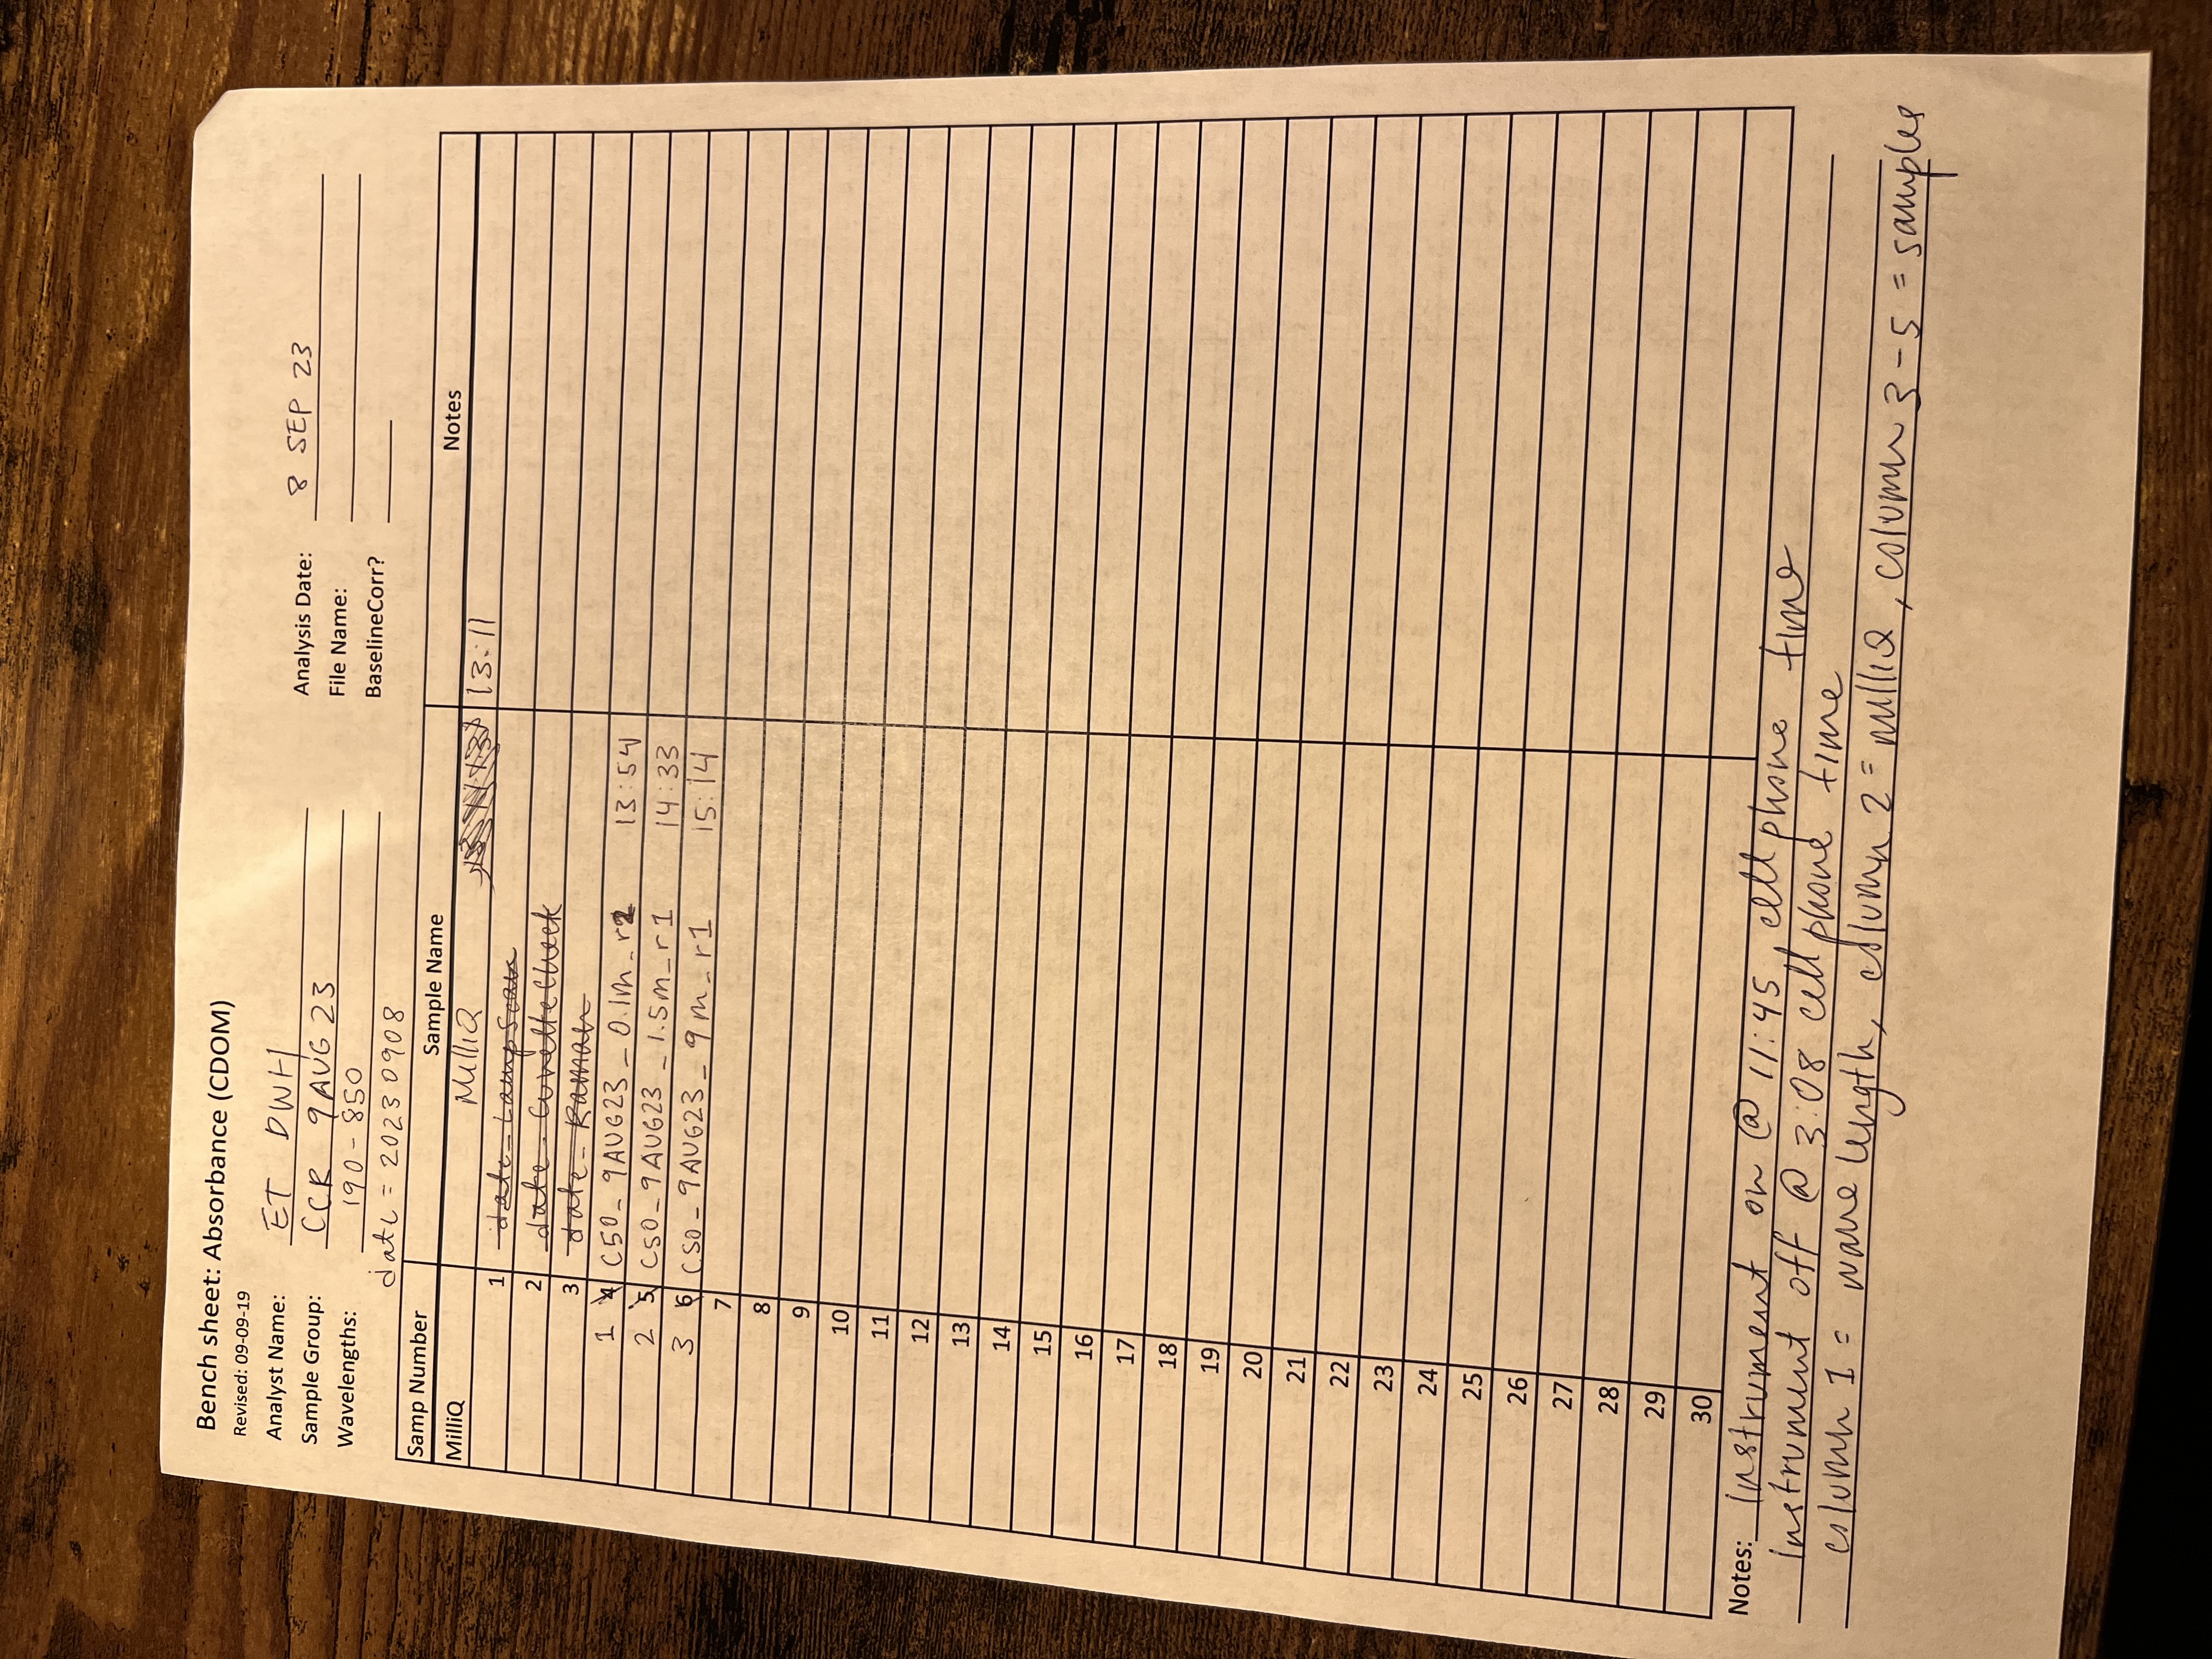 Bench sheet: Absorbance (CDOM)
Revised: 09-09-19
Analyst Name: ET DWH
Analysis Date: 8 SEP 23
Sample Group: CCR 9AUG23
File Name:
Wavelengths: 190-850
BaselineCorr?
date = 20230908
Samp Number Sample Name Notes
MilliQ MilliQ 13:11
1 date_LampScan
2 date_CuvetteCheck
3 date_Raman
1 4 C50_9AUG23_0.1m_r2 13:54
2 5 C50_9AUG23_1.5m_r1 14:33
3 6 C50_9AUG23_9m_r1 15:14
7
8
9
10
11
12
13
14
15
16
17
18
19
20
21
22
23
24
25
26
27
28
29
30
Notes: Instrument on @ 11:45, cell phone time
Instrument off @ 3:08 cell phone time
column 1 = wavelength, column 2 = milliQ, column 3-5 = samples